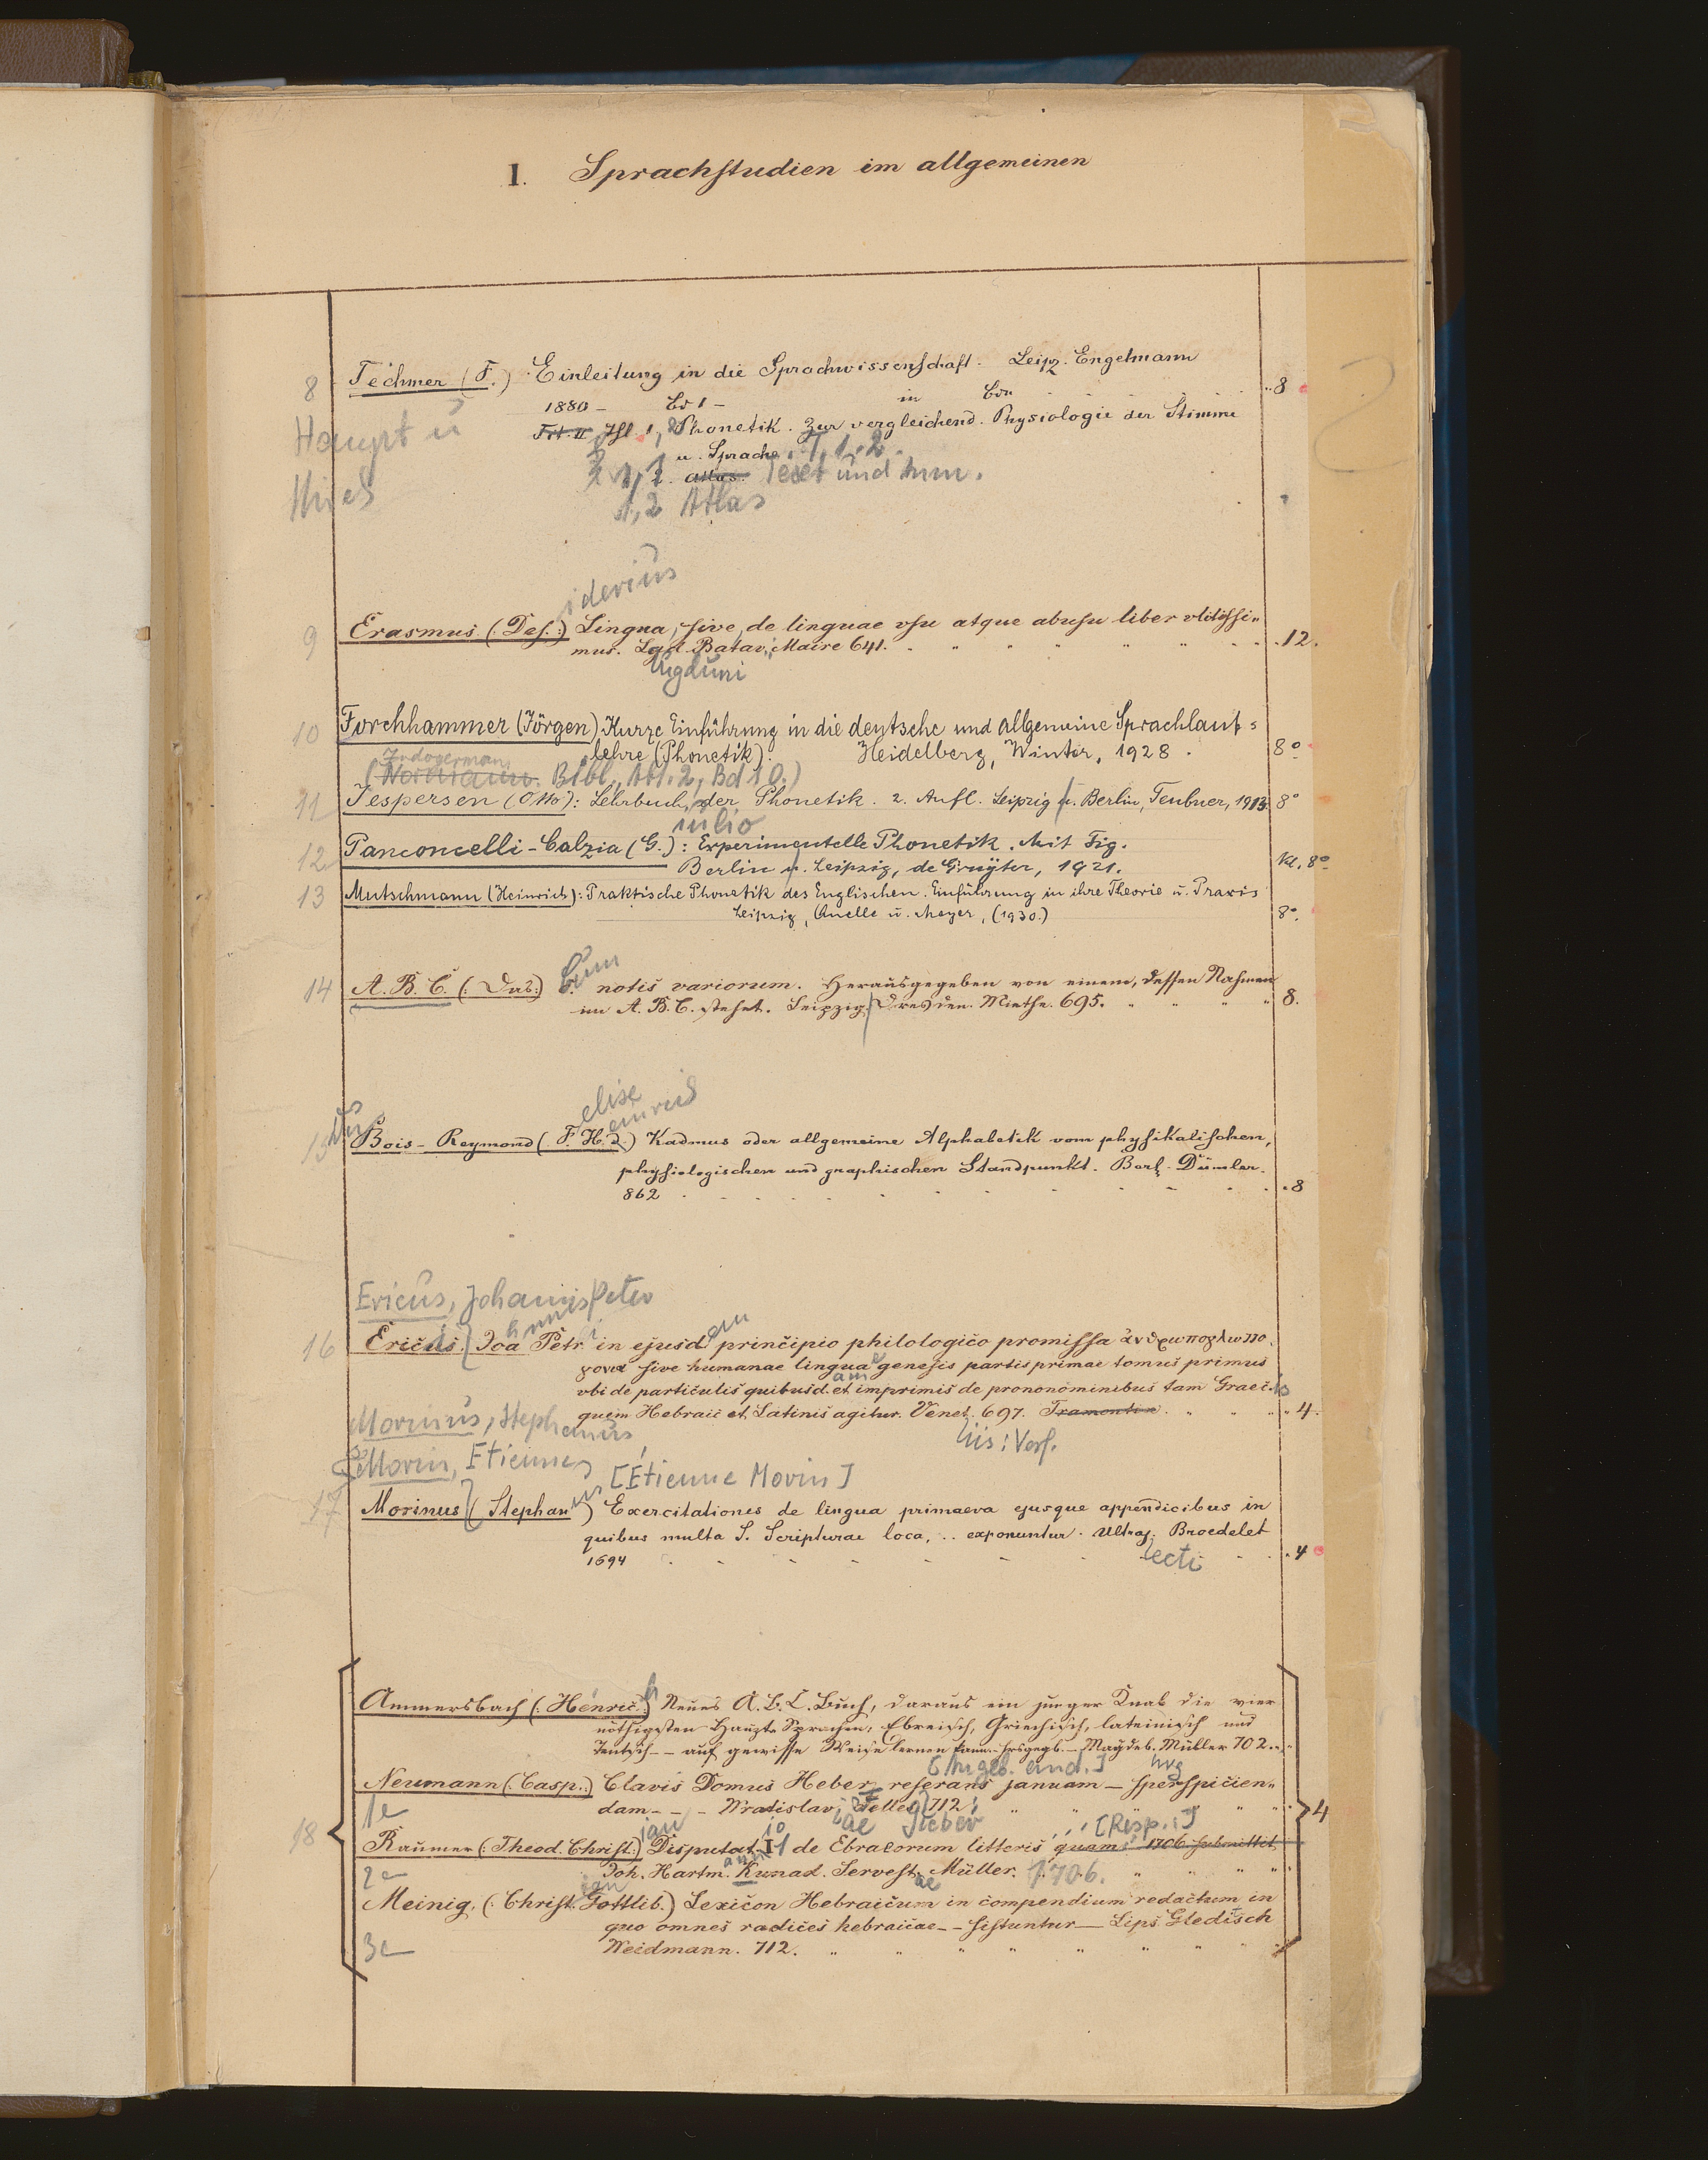 I. Sprachstudien im allgemeinen
8 Techmer (F.) Einleitung in die Sprachwissenschaft. Leipz. Engelmann
1880 – Bd 1 – in Bdn 8
Haupt u
1, 2 Phonetik. Zur vergleichend. Physiologie der Stimme
u. Sprache. T, 1. 2.
1, 1 Atlas. Text und
1, 2 Atlas
iderius
9 Erasmus (Des.) Lingua, sive, de linguae vsu atque abusu liber vtilissi„
mus. Lgd. Batav. Maire 641. 12.
ugduni
10 Forchhammer (Jörgen) Kurze Einführung in die deutsche und allgemeine Sprachlaut-
lehre (Phonetik). Heidelberg, Winter, 1928. 8°
Indogerman.
( Bibl., Abt. 2, Bd 10.)
11 Jespersen (Otto): Lehrbuch der Phonetik. 2. Aufl. Leipzig u. Berlin, Teubner, 1913. 8°
iulio
12 Panconcelli-Calzia (G.): Experimentelle Phonetik. Mit Fig.
Berlin u. Leipzig, de Gruyter, 1921. Kl. 8°
13 Mutschmann (Heinrich): Praktische Phonetik des Englischen. Einführung in ihre Theorie u. Praxis
Leipzig, Quelle u. Meyer, (1930.) 8°.
Cum
14 A. B. C. (: Das:) C. notis variorum. Herausgegeben von einem, dessen Nahmen
im A. B. C. stehet. Leipzig, Dresden. Miethe. 695. 8.
elise
einrich
15 Bois-Reymond (F. H. d.) Kadmus oder allgemeine Alphabetik vom physikalischen,
physiologischen und graphischen Standpunkt. Berl. Dümler.
862 8
Ericus, Johannis Peter
16 Ericus. Joa Petr. in ejusd. principio philologico promissa ἀνθρωπογλωττο
γονια sive humanae linguae genesis partis primae tomus primus
vbi de particulis quibusd. et imprimis de prononominibus tam Graec.
quam Hebraic et Latinis agitur. Venet. 697. Tramontin 4.
iis: Verf.
Morinus, Stephanus
Morin, Etienne
[Étienne Morin]
17 Morinus (Stephan) Exercitationes de lingua primaeva ejusque appendicibus in
quibus multa S. Scripturae loca, .. exponuntur. Ultraj. Broedelet
1694 4
ecti
Ammersbach (: Henric.) Neues A.B.C. Buch, daraus ein junger Knab die vier
nöthigsten Haupt-Sprachen, Ebreisch, Griechisch, lateinisch und
Teutsch – – auf gewisse Weise lernen kann. – hrsgegb. – Magdeb. Müller 702.
[Angeb. sind.] urg
Neumann (: Casp.:) Clavis Domus Heber reserans januam – sperspicien„
1e dam – – – Wratislav. 712 4
ian io ae Sieber [Resp.:]
18 Raumer (: Theod. Christ.:) Disputat. I 1 de Ebraeorum litteris quam 1706. submittit
2e Joh. Hartm. Kunad. Servest. Müller. 1706.
Meinig. (: Christ. Gottlib.) Lexicon Hebraicum in compendium redactum in
quo omnes radices hebraicae – – sistuntur – Lips Gleditsch
3e Weidmann. 712.